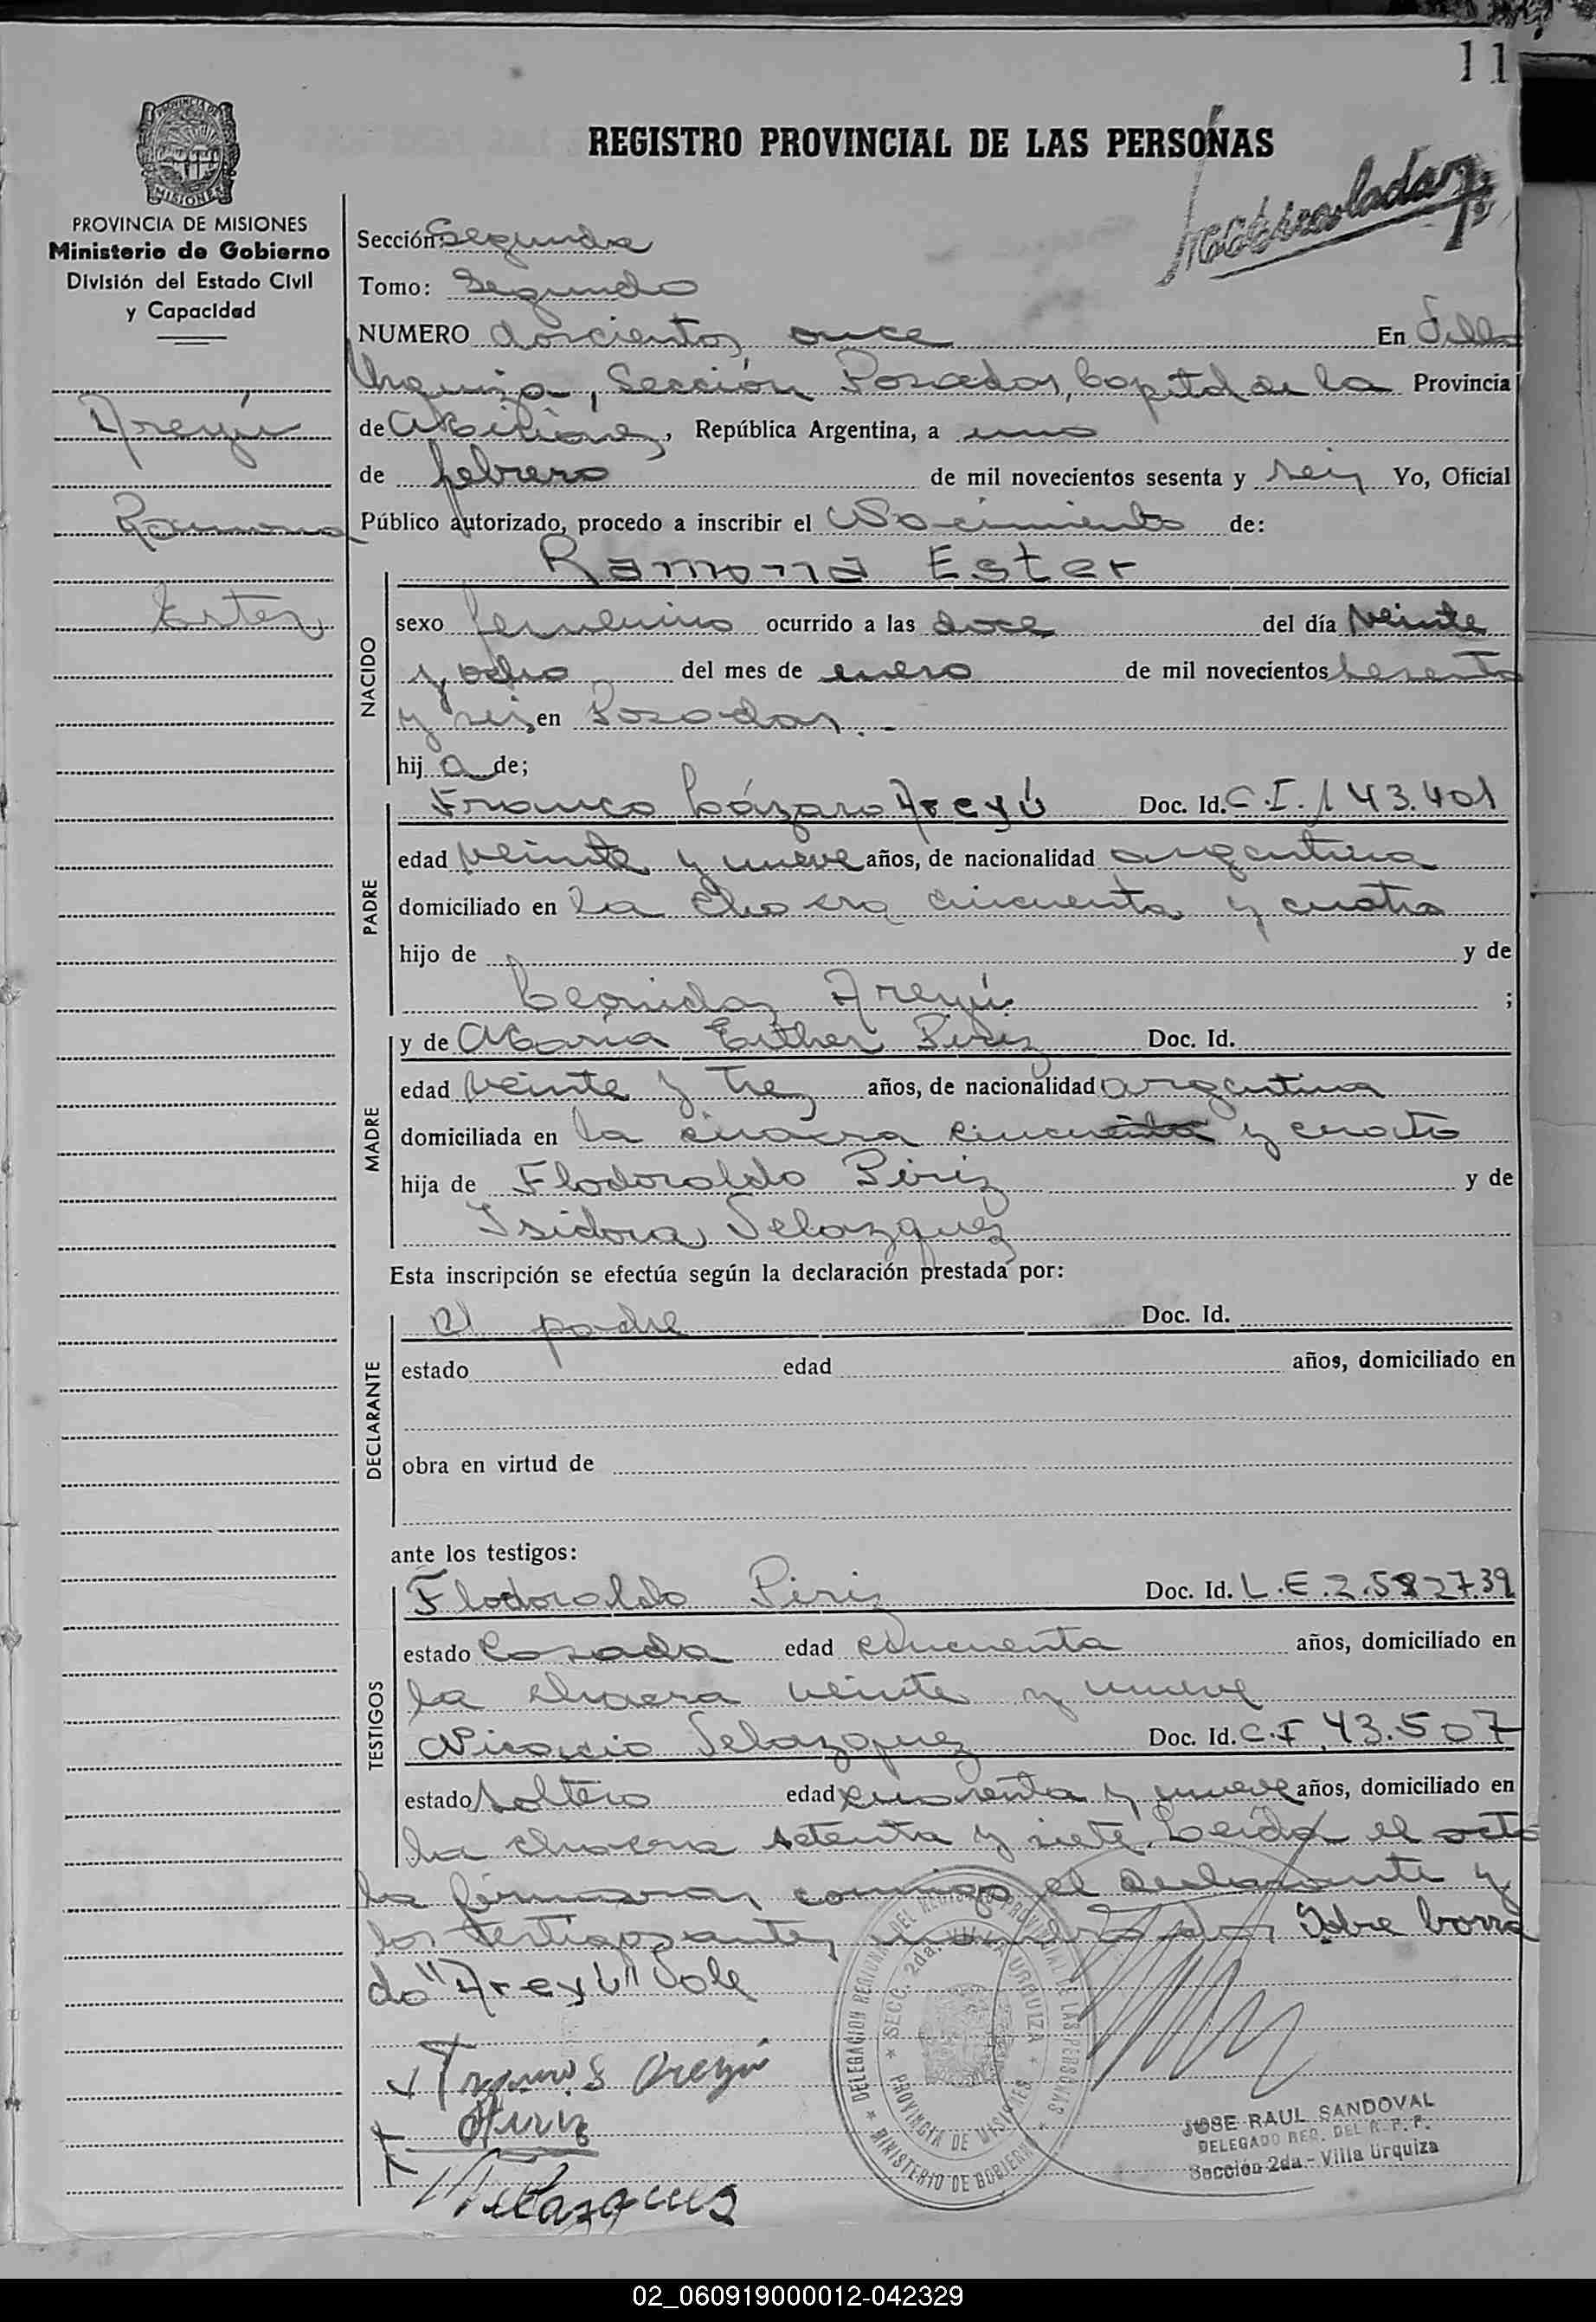 11
REGISTRO PROVINCIAL DE LAS PERSONAS
PROVINCIA DE MISIONES
Ministerio de Gobierno
División del Estado Civil
y Capacidad
Areyú
Ramona
Ester
Sección: Segunda
Tomo: Segundo
NUMERO doscientos once En Villa
Urquiza, Sección Posadas, Capital de la Provincia
de Misiones, República Argentina, a uno
de febrero de mil novecientos sesenta y seis Yo, Oficial
Público autorizado, procedo a inscribir el Nacimiento de:
Ramona Ester
NACIDO
sexo femenino ocurrido a las doce del día veinte
y ocho del mes de enero de mil novecientos sesenta
y seis en Posadas.-
hij a de;
PADRE
Franco Lázaro Areyú Doc. Id. C.I. 143.401
edad veinte y nueve años, de nacionalidad argentina
domiciliado en la chacra cincuenta y cuatro
hijo de y de
Leonidas Areyú ;
MADRE
y de María Esther Piriz Doc. Id.
edad veinte y tres años, de nacionalidad argentina
domiciliada en la chacra cincuenta y cuatro
hija de Flodoraldo Piriz y de
Isidora Velazquez
Esta inscripción se efectúa según la declaración prestada por:
DECLARANTE
el padre Doc. Id.
estado edad años, domiciliado en
obra en virtud de
ante los testigos:
TESTIGOS
Flodoraldo Piriz Doc. Id. L.E. 2.582739
estado Casado edad cincuenta años, domiciliado en
la chacra veinte y nueve
Velazquez Doc. Id. C.I. 43.507
estado soltero edad cuarenta y nueve años, domiciliado en
la chacra setenta y siete. Leida el acta
la firmaran conmigo el declarante y
los testigos antes nombrados Sobre borra
do "Areyú" Vale
Areyú
Piriz
Velazquez
DELEGACION REGIONAL DEL REGISTRO PROVINCIAL DE LAS PERSONAS
MINISTERIO DE GOBIERNO
SECC. 2da. VILLA URQUIZA
PROVINCIA DE MISIONES
JOSE RAUL SANDOVAL
DELEGADO REG. DEL R. P. P.
Sección 2da - Villa Urquiza
02_060919000012-042329